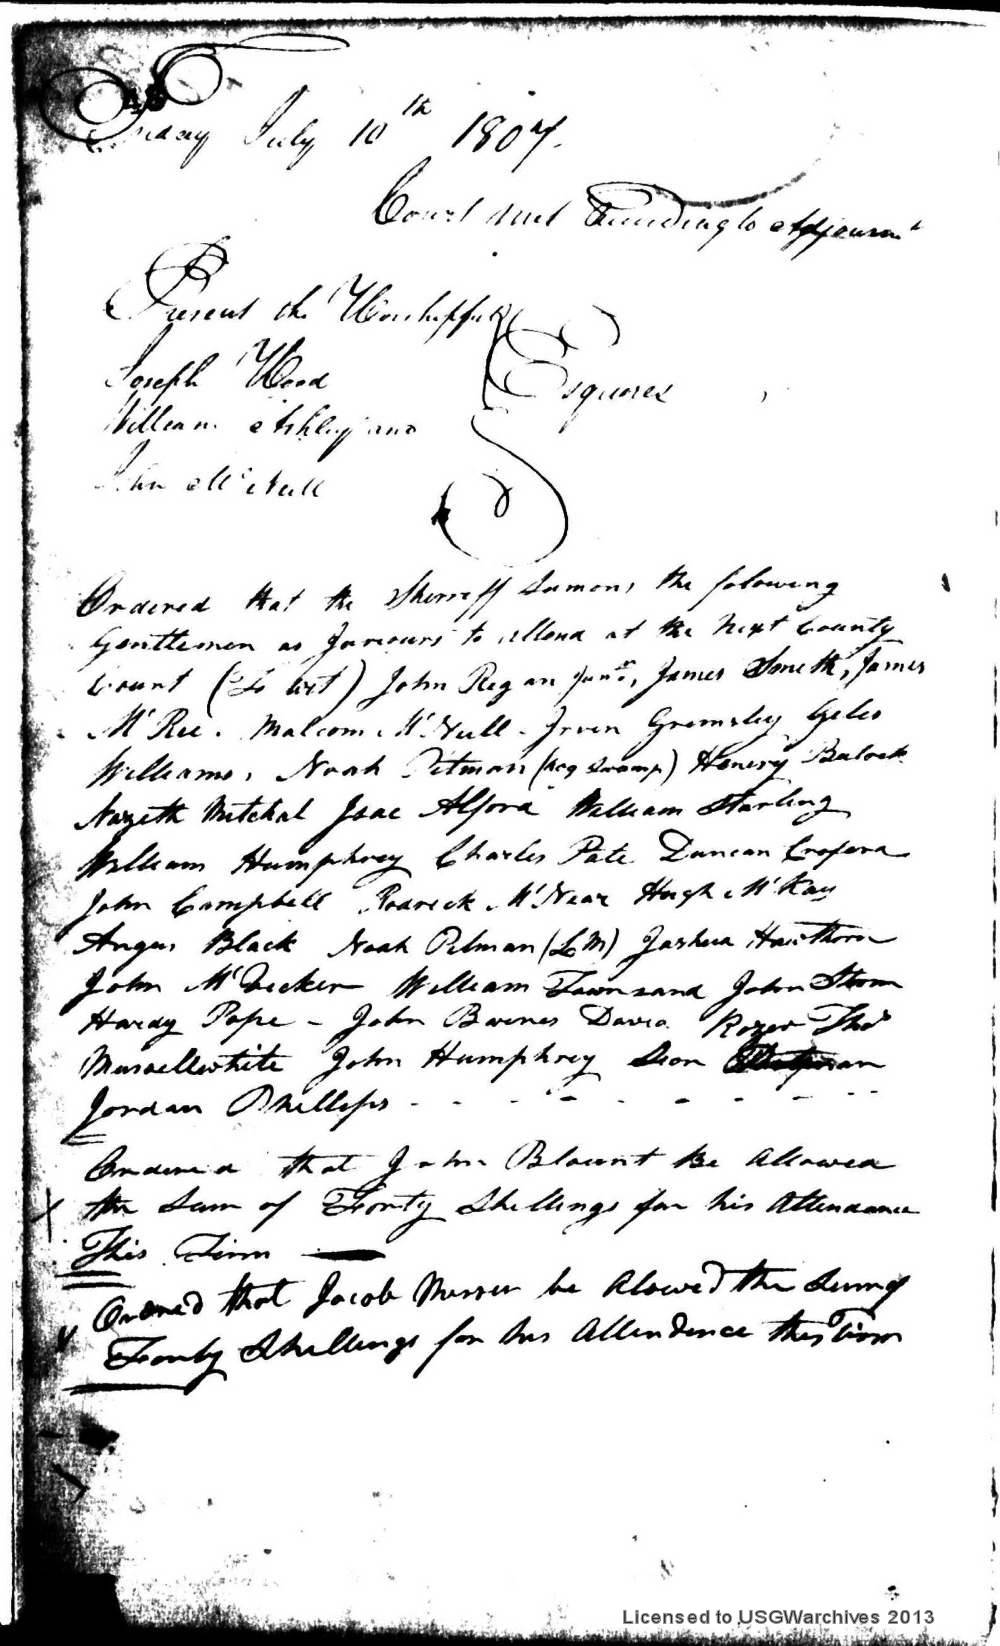 Friday July 10th 1807.
Court met According to Adjournt
Present the Worshipfull
Joseph Wood
Esquires
William Ashley and
John McNeill
Ordered that the Sherreff Sumons the folowing
Gentlemen as Jureours to attend at the Next County
Court (To wit) John Regan Junr, James Smith, James
McRee. Malcom McNeill. Irvin Gremsley Geles
Williams, Noah Pitman (hog Swamp) Henery Bulock
Nazeth Mitchal Isac Alford William Starling
William Humphrey Charles Pate Duncan
John Campbell Rodreck McNear Hugh McKay
Angus Black Noah Pitman (L M) Joshua Hawthorn
John McDecker William Townsand John Strom
Hardy Pope - John Barnes David Rozer Thos
Musellwhite John Humphrey Sion
Jordan Phillips - - - - - - - - -
Ordered that John Blount be Allowed
the Sum of Forty Shillings for his Attendance
This Term
Ordred that Jacob Mercer be Alowed the Sum of
Forty Shillings for his Attendence this Term
Licensed to USGWarchives 2013